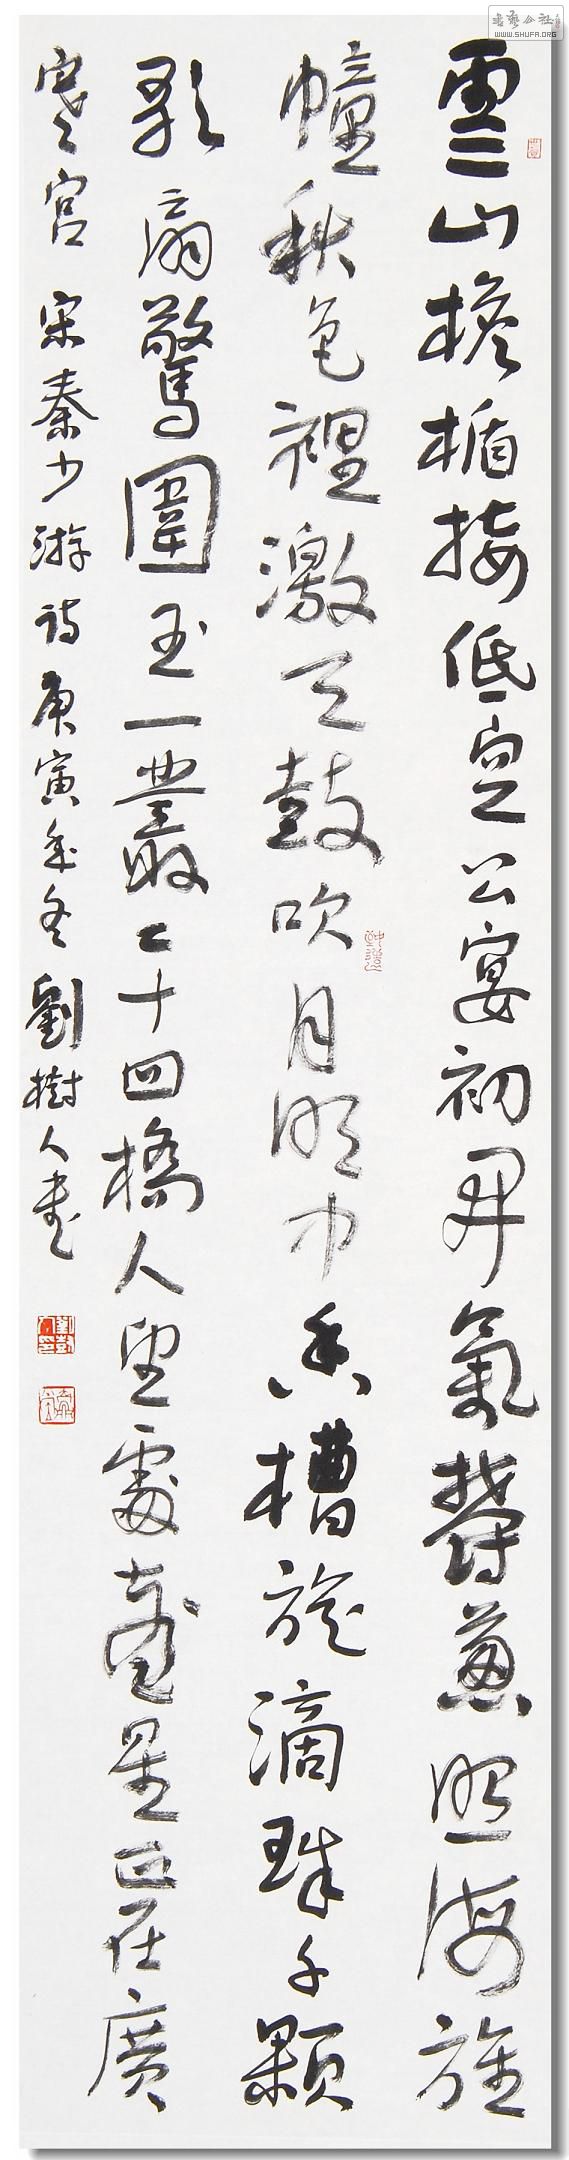 雲山檐楯接低空公宴初開氣鬱蔥照海旌
幢秋色裡激天鼓吹月明中香槽旋滴珠千顆
歌扇驚圍玉一叢二十四橋人望處臺星正在廣
寒宮 宋秦少游詩庚寅年冬劉樹人書
書藝公社
WWW.SHUFA.ORG